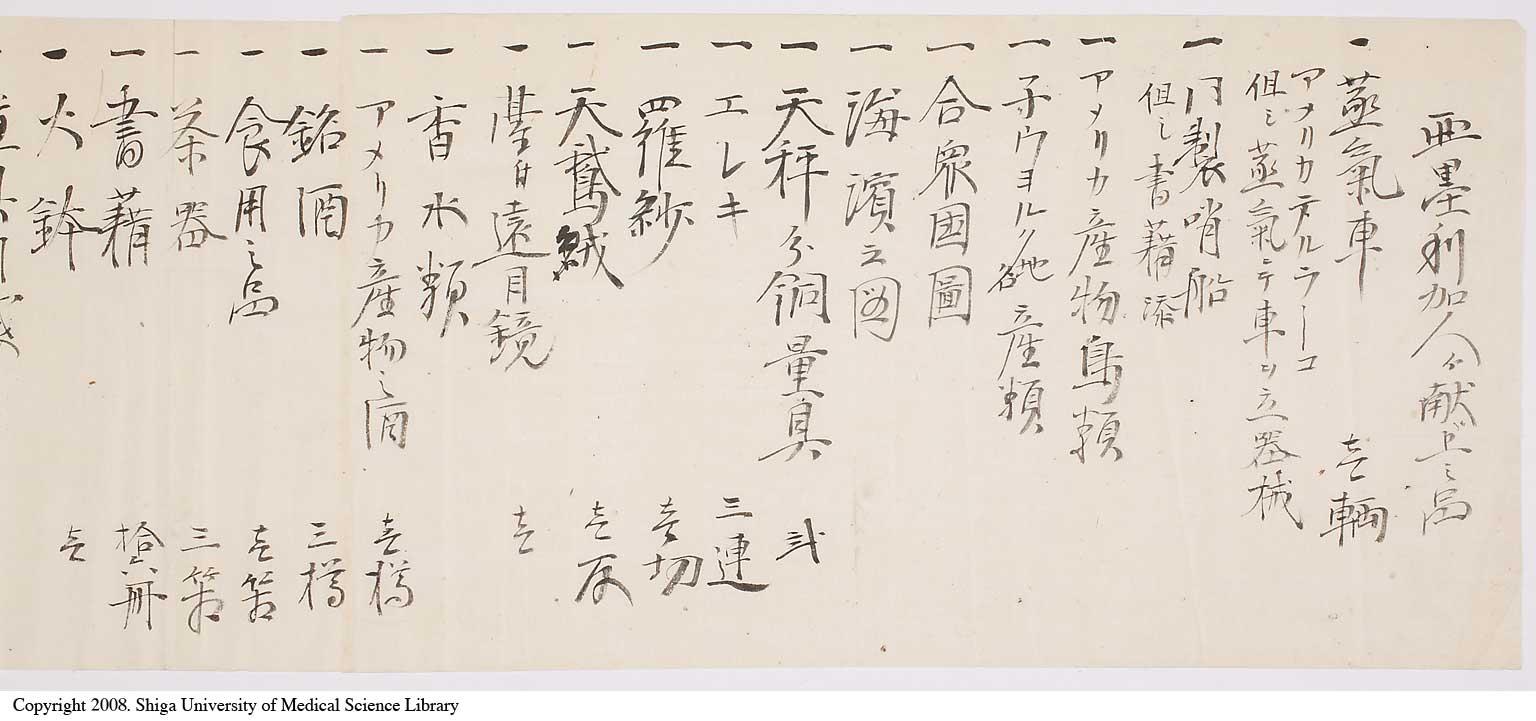 亜墨利加人ゟ献上之品
一 蒸氣車 壱輌
アメリカテアルラーコ
但シ蒸氣ニテ車ヲ立器械
一 同製哨船
但シ書籍添
一 アメリカ産物鳥類
一 子ウヨルク地産類
一 合衆国圖
一 海濱之図
一 天秤分銅量具 弐
一 エレキ 三連
一 羅紗 壱切
一 天鵞絨 壱反
一 遠目鏡 壱
一 香水類
一 アメリカ産物之酒 壱樽
一 銘酒 三樽
一 食用之品 壱箱
一 茶器 三箱
一 書籍 拾六冊
一 火鉢 壱
Copyright 2008. Shiga University of Medical Science Library